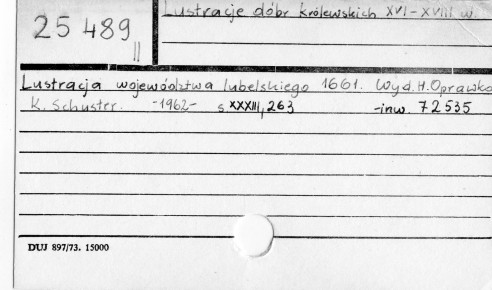 Lustracje dóbr królewskich XVI-XVIII w.
25 489
II
Lustracja województwa lubelskiego 1661. Wyd. H. Oprawko
K. Schuster. -1962- s. XXXIII, 263 -inw. 72535
DUJ 897/73. 15000